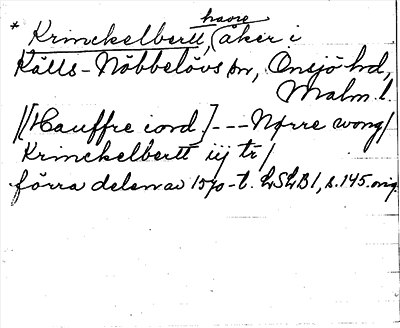 havre
* Krinckelbertt, (åker i
Källs-Nöbbelövs sn, Onsjö hd,
Malm. l.
/[Hauffre iord] --- Nørre wong/
Krinckelbertt iij tr/
förra delen av 1570-t. LSLB 1, s. 145. orig.